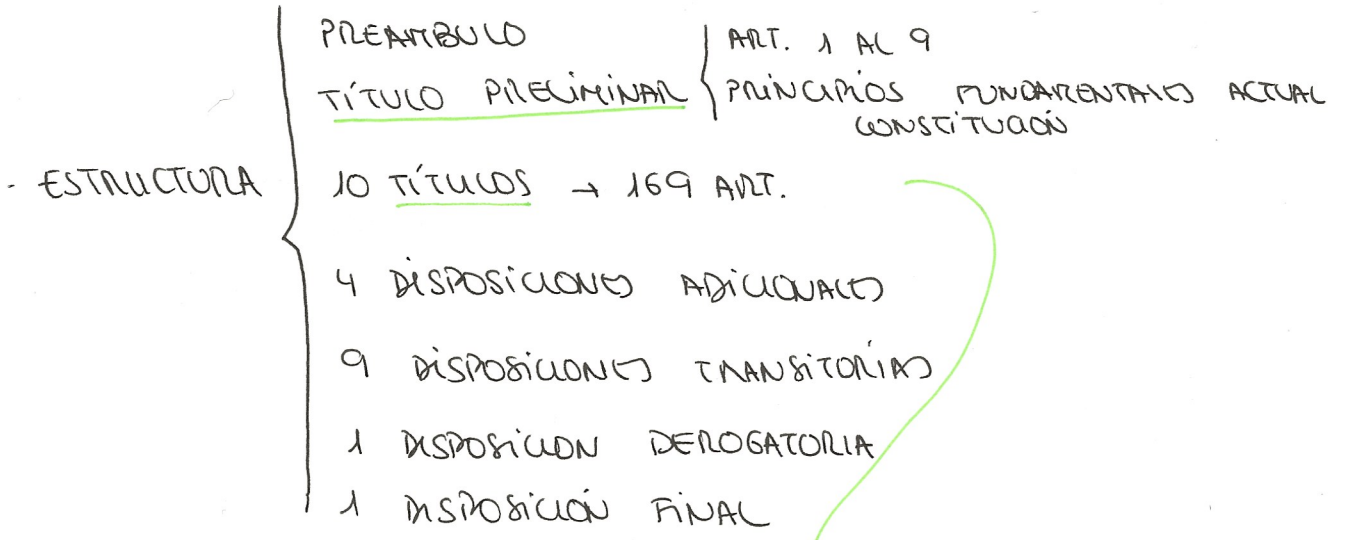 PREAMBULO
TÍTULO PRELIMINAR
ART. 1 AL 9
PRINCIPIOS FUNDAMENTALES ACTUAL
CONSTITUCIÓN
- ESTRUCTURA
10 TÍTULOS → 169 ART.
4 DISPOSICIONES ADICIONALES
9 DISPOSICIONES TRANSITORIAS
1 DISPOSICION DEROGATORIA
1 DISPOSICIÓN FINAL